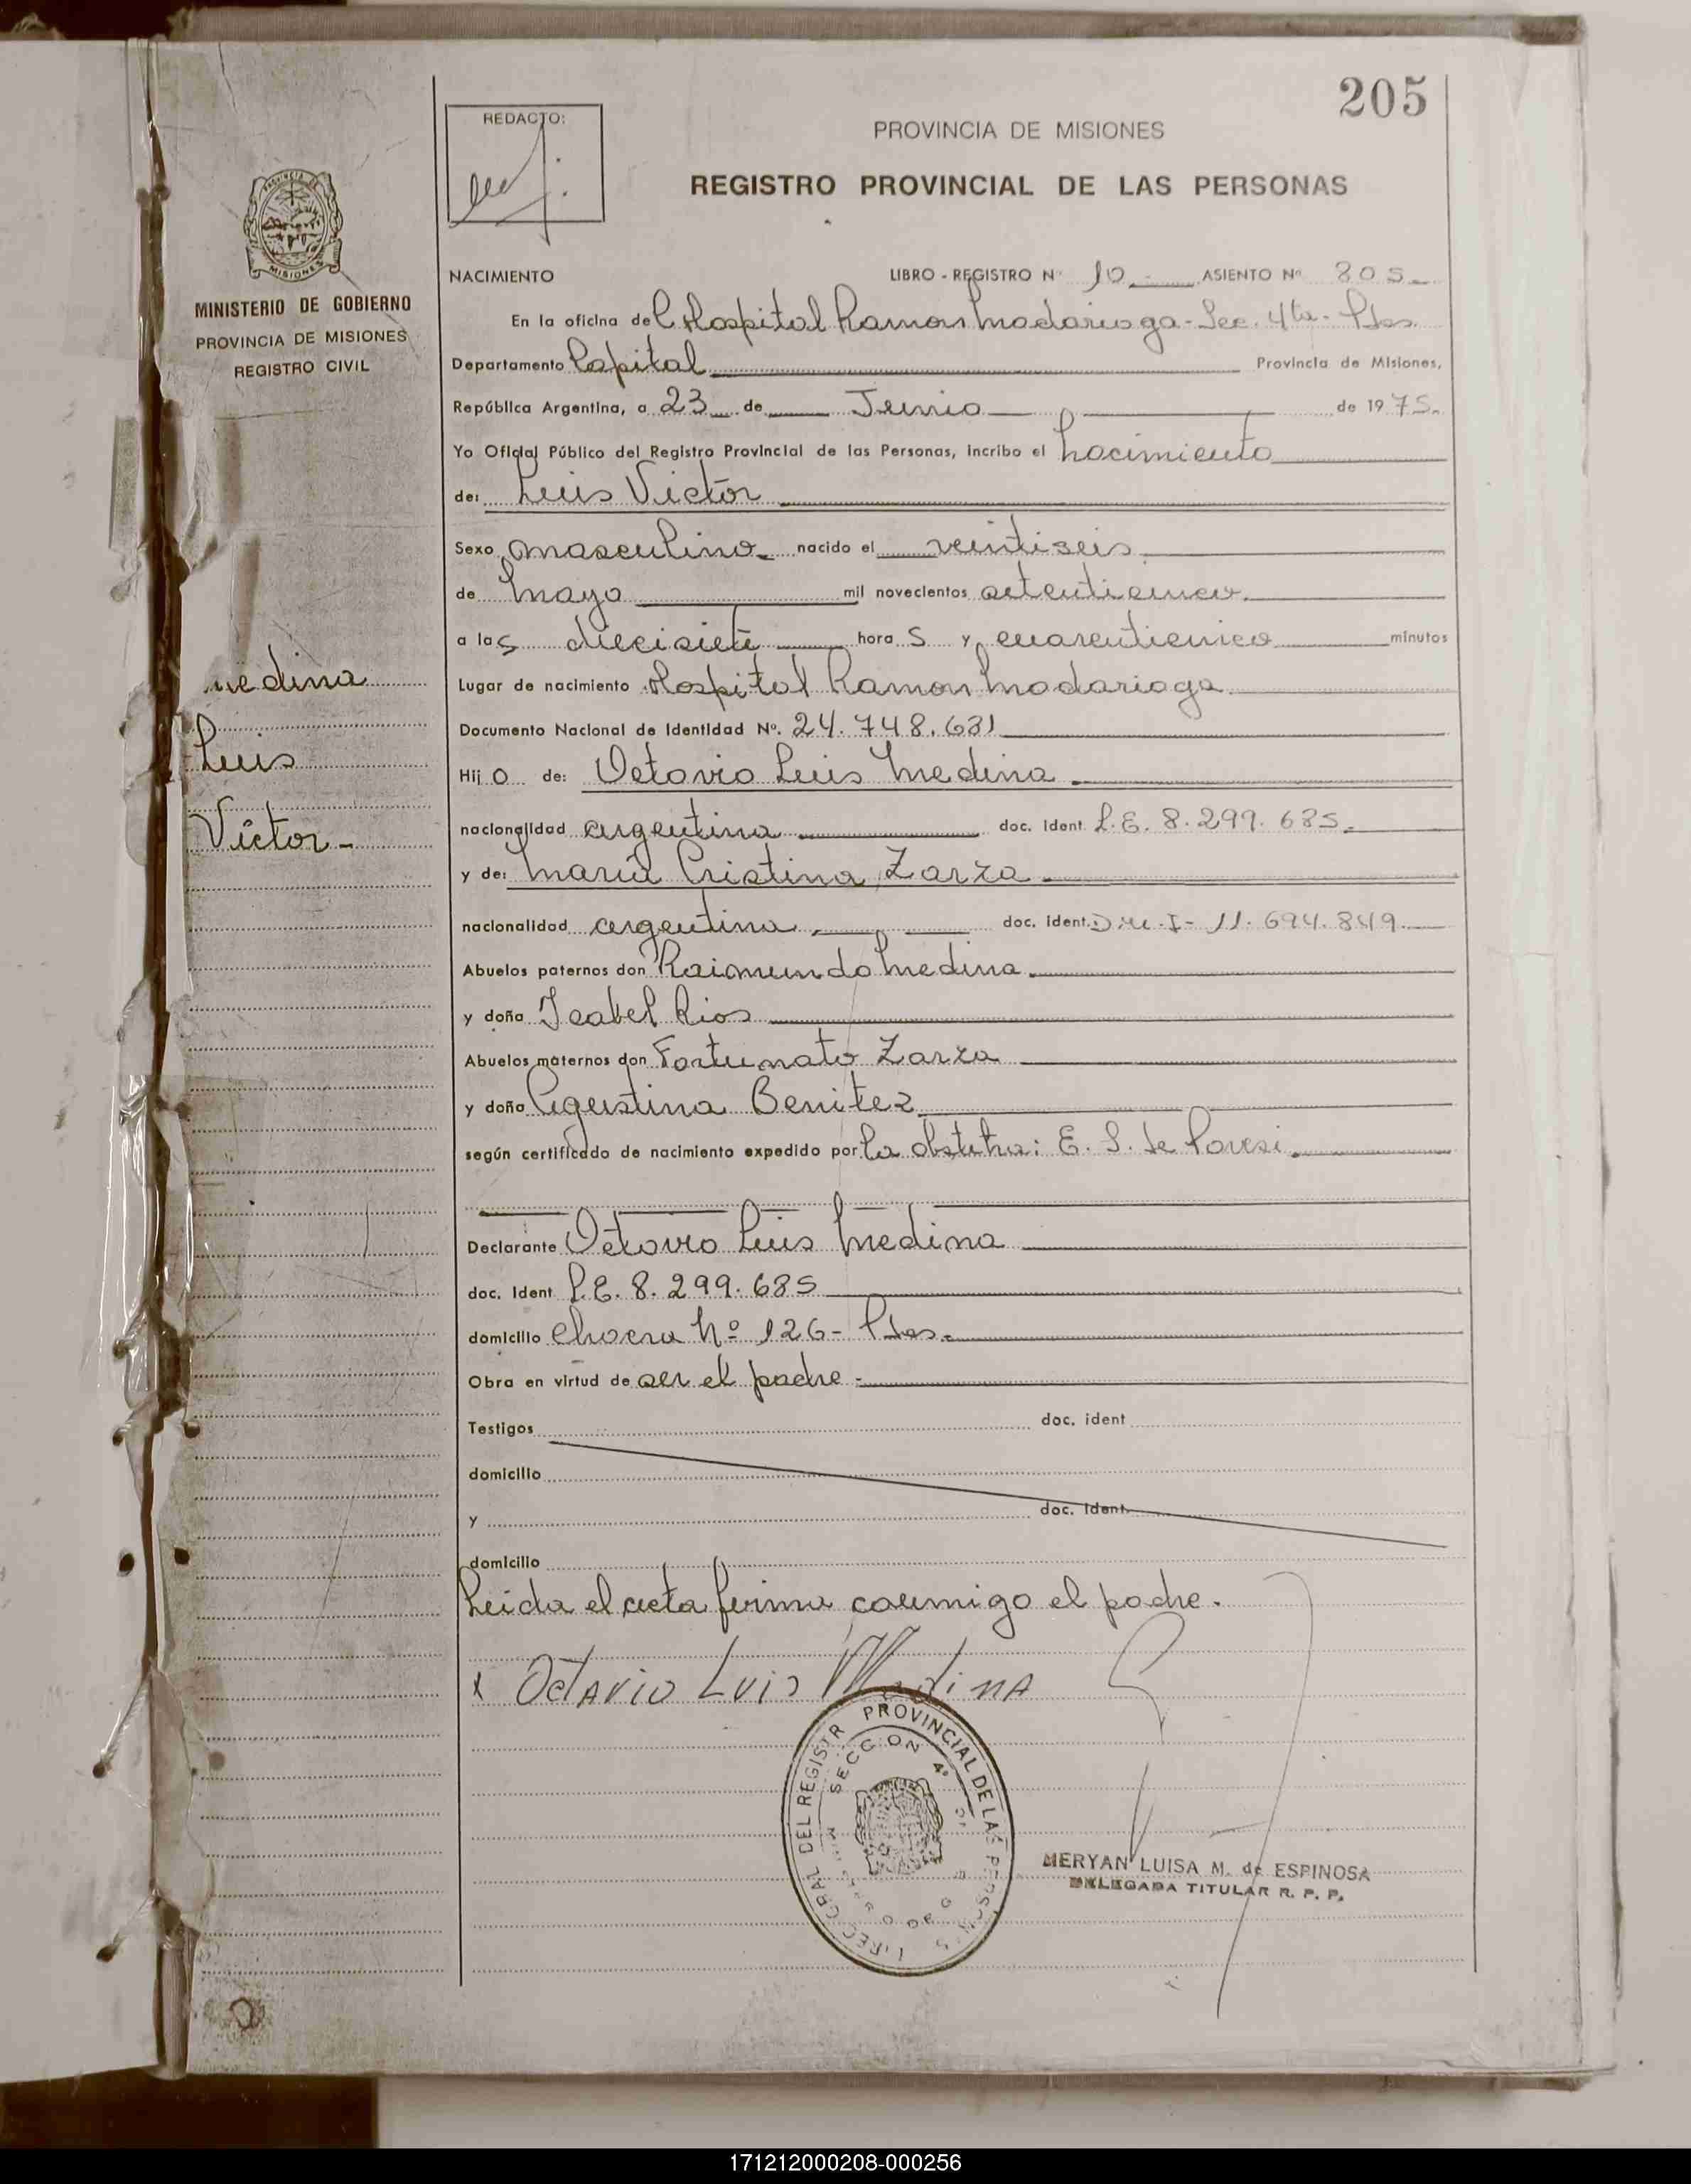 205
REDACTO:
PROVINCIA DE MISIONES
REGISTRO PROVINCIAL DE LAS PERSONAS
MINISTERIO DE GOBIERNO
PROVINCIA DE MISIONES
REGISTRO CIVIL
Medina
Luis
Victor -
NACIMIENTO LIBRO - REGISTRO Nº 10 - ASIENTO Nº 805-
En la oficina del Hospital Ramon Madariaga - Sec. 4ta - Pdas.
Departamento Capital Provincia de Misiones,
República Argentina, a 23 de Junio de 1975.
Yo Oficial Público del Registro Provincial de las Personas, incribo el nacimiento
de: Luis Victor
Sexo masculino nacido el veintiseis
de mayo mil novecientos setenticinco
a las diecisiete horas y cuarenticinco minutos
Lugar de nacimiento Hospital Ramon Madariaga
Documento Nacional de Identidad Nº. 24.748.631
Hijo de: Octavio Luis Medina
nacionalidad argentina doc. ident. L.E. 8.299.685.
y de: María Cristina Zarza
nacionalidad argentina doc. ident. D.N.I - 11.694.849
Abuelos paternos don Raimundo Medina
y doña Isabel Rios
Abuelos maternos don Fortunato Zarza
y doña Agustina Benitez
según certificado de nacimiento expedido por la obstetra: E. S. de
Declarante Octavio Luis Medina
doc. ident L.E. 8.299.685
domicilio chacra Nº 126 - Pdas.
Obra en virtud de ser el padre -
Testigos doc. ident
domicilio
y doc. ident.
domicilio
Leida el acta firma conmigo el padre.
x Octavio Luis Medina
PROVINCIAL DE LAS
DEL REGISTR
SECCION 4º
MERYAN LUISA M. de ESPINOSA
DELEGADA TITULAR R. P. P.
171212000208-000256